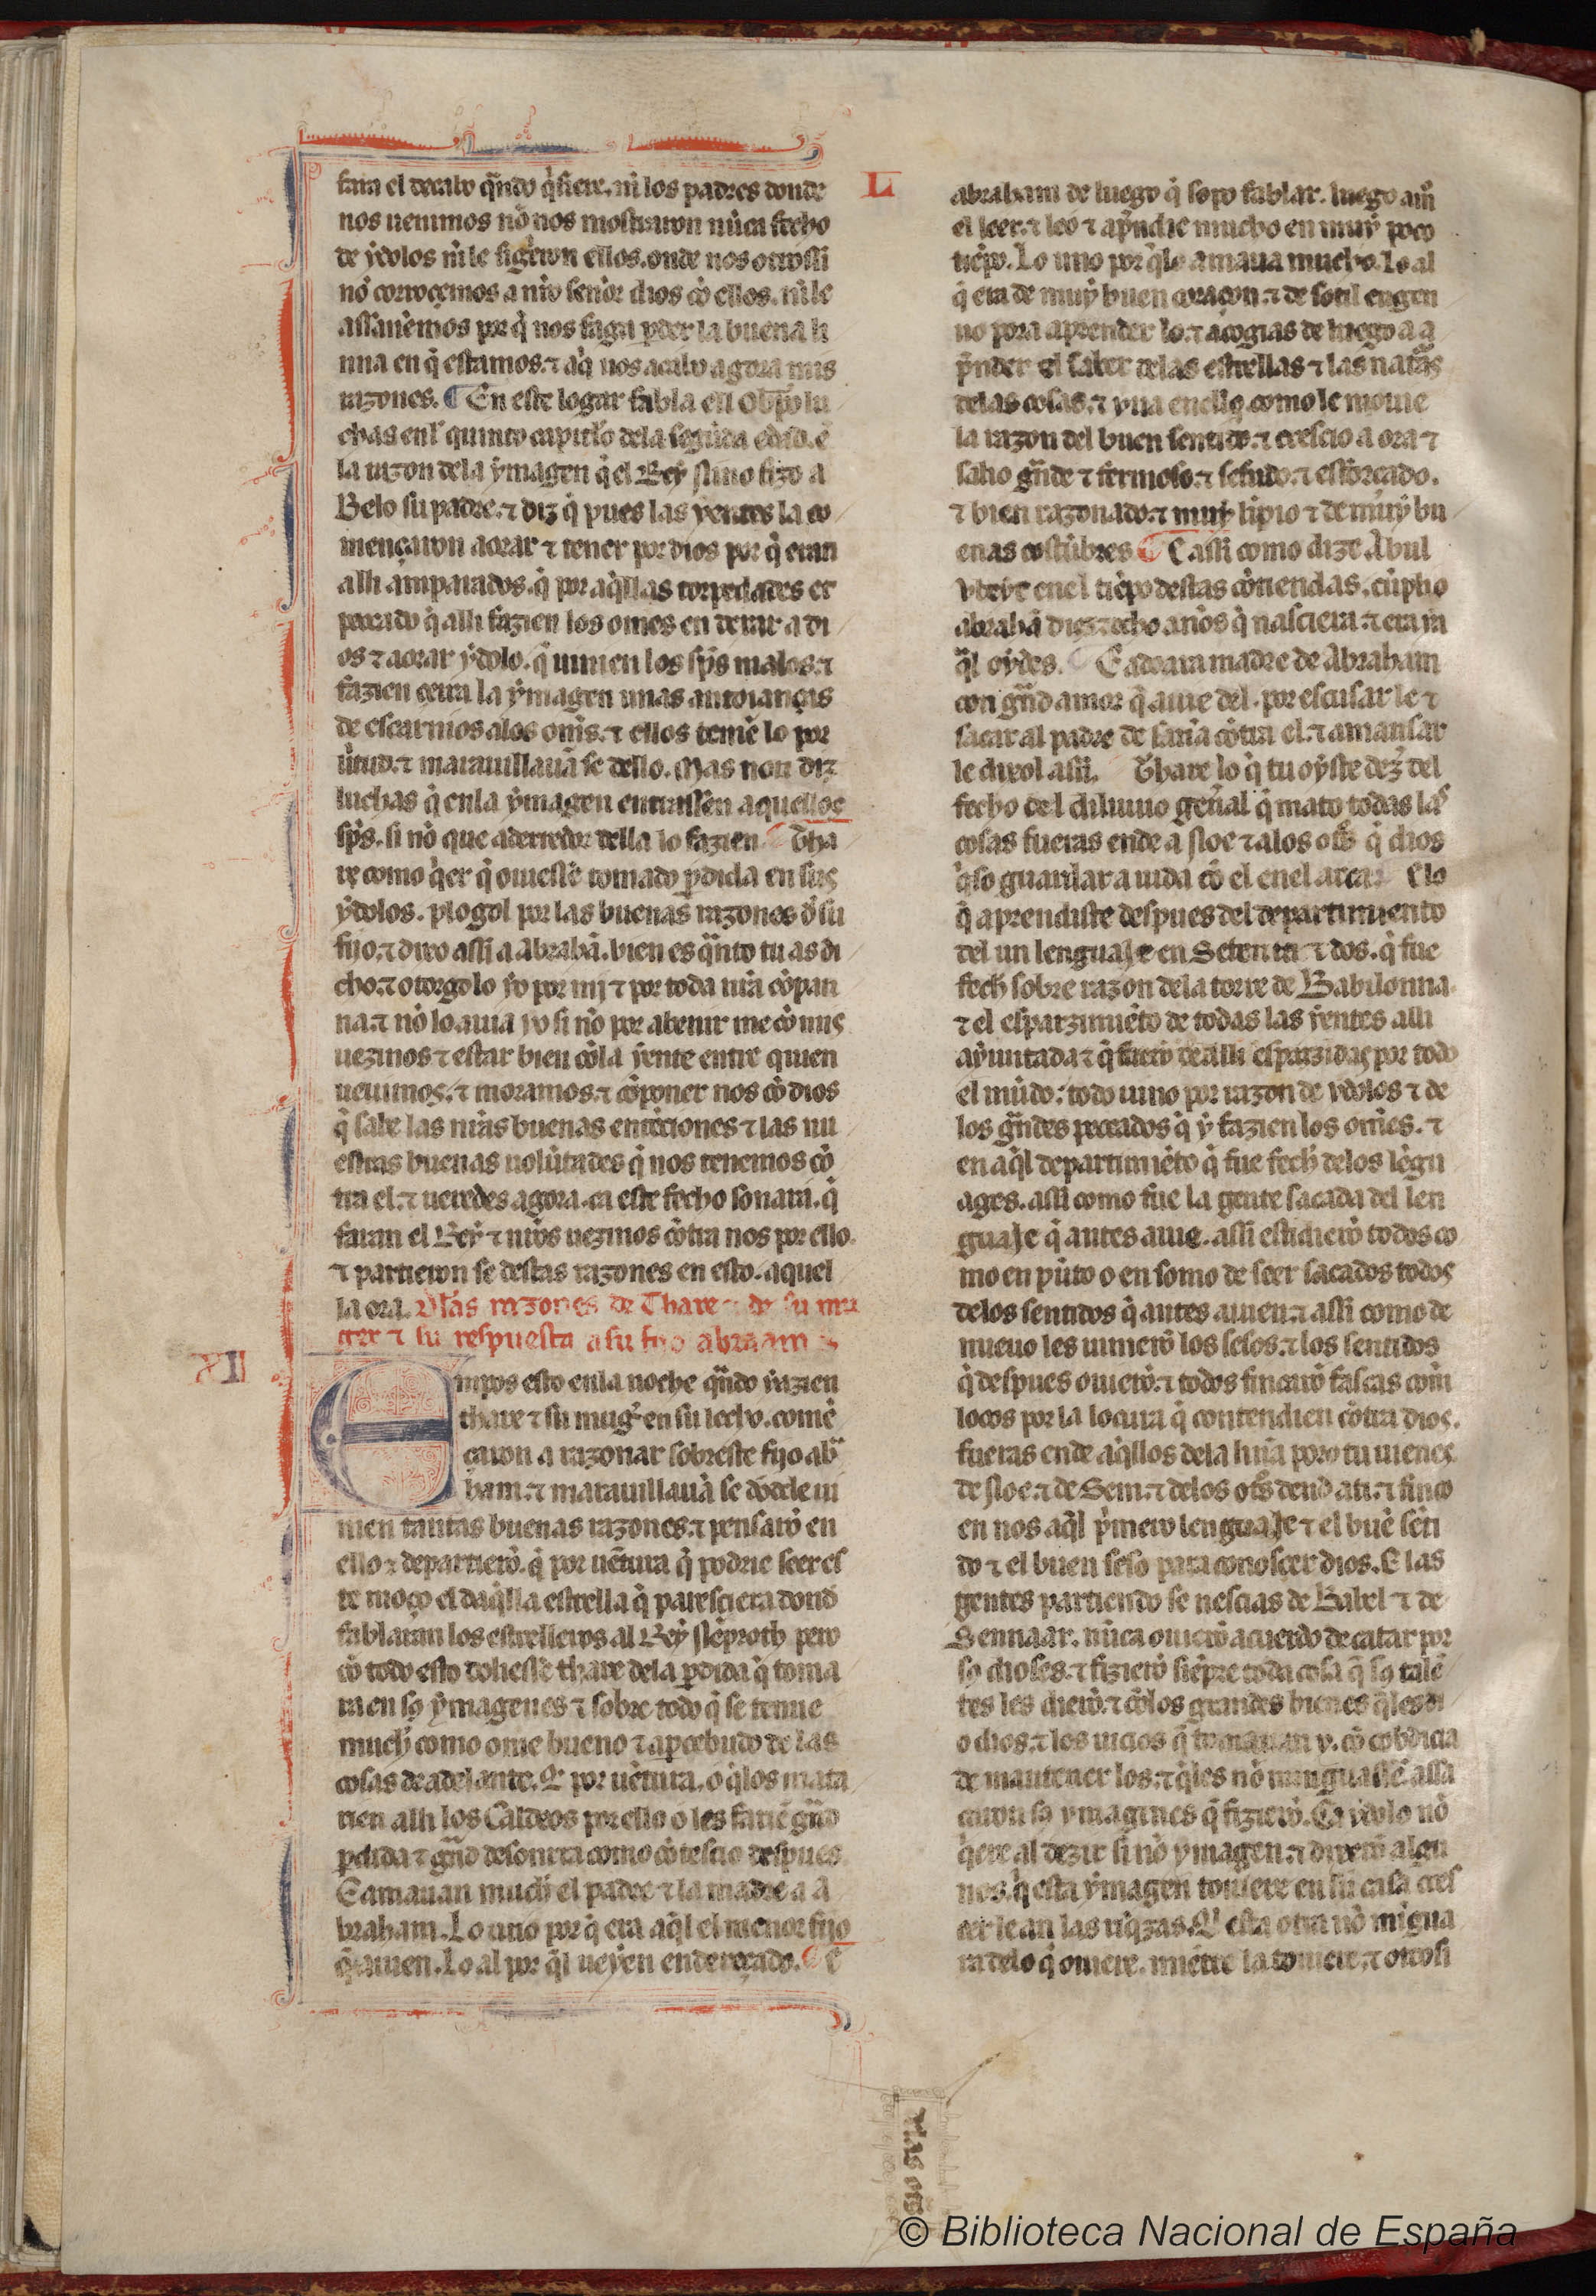 L
fara el decabo q̃ndo q̃siere. ni los padres donde
nos uenimos nõ nos mostraron nũca fecho
de ẏdolos ni le figieron ellos. onde nos otrossi
nõ connoçemos a nr̃o señor dios cõ ellos. nil e
assanemos por q̃ nos faga ꝑder la buena li
nna en q̃ estamos. ⁊ aq̃ nos acabo agora mis
razones. ¶ En este logar fabla el obp̃o lu
chas enl quinto capitl̃o dela segũda
la razon dela ẏmagen q̃ el Reẏ Nino fizo a
Belo su padre. ⁊ diz q̃ pues las yentes la co
mençaron aorar ⁊ tener por dios por q̃ eran
alli amparados. q̃ por aq̃llas torpedades et
peccado q̃ alli fazien los omes en dexar a di
os ⁊ aorar ẏdolo. q̃ uinien los sp̃s malos. ⁊
fazien cerca la ẏmagen unas antoianças
de escarnios alos om̃s. ⁊ ellos teniẽ lo por
uirtud. ⁊ marauillauã se dello. Mas non diz
luchas q̃ enla ẏmagen entrassen aquellos
sp̃s. si nõ que aderredor della lo fazien. ¶ Tha
re como q̃er q̃ ouiesse tomado ꝑdida en sus
ẏdolos. plogol por las buenas razones d̃ su
fijo. ⁊ dixo assi a Abrahã. bien es q̃nto tu as di
cho. ⁊ otorgolo ẏo por mi ⁊ por toda mia cõpan
na. ⁊ nõ lo auia yo si nõ por abenir me cõ mis
uezinos ⁊ estar bien cõla ẏente entre quien
uiuimos. ⁊ moramos. ⁊ cõponer nos cõ dios
q̃ sabe las nr̃as buenas entẽciones ⁊ las nu
estras buenas uolũtades q̃ nos tenemos cõ
tra el. ⁊ ueredes agora. ca este fecho sonara. q̃
faran el Reẏ ⁊ nr̃os uezinos cõtra nos por ello.
⁊ partieron se destas razones en esto. aquel
la ora. Dlãs razones de Thare ⁊ de su mu
ger ⁊ su respuesta a su fijo abraam
XII
Empos esto enla noche q̃ndo ẏazien
thare ⁊ su mug̃ en su lecho. comẽ
çaron a razonar sobreste fijo ab̃
ham. ⁊ marauillauã se dõdele ui
nien tantas buenas razones. ⁊ pensarõ en
ello ⁊ departierõ. q̃ por uẽtura q̃ podrie seer es
te moço el daq̃lla estrella q̃ paresciera dond̃
fablaran los estrelleros al Reẏ Nẽproth pero
cõ todo esto doliesse thare dela ꝑdida q̃ toma
ra en sꝯ ẏmagenes ⁊ sobre todo q̃ se temie
much̃ como ome bueno ⁊ aꝑcebudo de las
cosas de adelante. ⁊ por uẽtura. o q̃los mata
rien alli los Caldeos por ello o les fariẽ gñd
ꝑdida ⁊ gñd desonrra como cõtescio despues
E amauan much̃ el padre ⁊ la madre a A
braham. Lo uno por q̃ era aq̃l el menor fijo
q̃ auien. Lo al por q̃l ueẏen endereçado. ¶ E
abraham de luego q̃ sopo fablar. luego aiñ
el leer. ⁊ leo ⁊ apñdie mucho en muẏ poco
tiẽpo. Lo uno por q̃lo amaua mucho. Lo al
q̃ era de muẏ buen coraçon. ⁊ de sotil engen
no pora aprender lo. ⁊ acogias de luego a a
p̃nder el saber delas estrellas ⁊ las nat̃as
delas cosas. ⁊ yua enello como le mouie
la razon del buen sentido. ⁊ crescio a ora ⁊
salio gñde ⁊ fermoso. ⁊ sesudo. ⁊ esforçado.
⁊ bien razonado. ⁊ muẏ lĩpio ⁊ de muẏ bu
enas costũbres ¶ E assi como dize Abul
ybeyt enel tiẽpo destas cõtiendas. cũplio
abrahã diez ⁊ ocho años q̃ nasciera. ⁊ era ya
q̃l oẏdes. ¶ E adoara madre de Abraham
con gñd amor q̃ auie del. por escusar le ⁊
sacar al padre de saña cõtra el. ⁊ amansar
le dixol assi. ¶ Thare lo q̃ tu oẏste dez̃ del
fecho del diluuio geñal q̃ mato todas las
cosas fueras ende a Noe ⁊ alos ot̃s q̃ dios
q̃so guardar a uida cõ el enel arca. ¶ E lo
q̃ aprendiste despues del departimiento
del un lenguaje en Setenta ⁊ dos. q̃ fue
fech̃ sobre razon dela torre de Babilonna
⁊ el esparzimiẽto de todas las ẏentes alli
aẏuntada ⁊ q̃ fuerõ dealli esparzidas por todo
el mũdo: todo uino por razon de ydolos ⁊ de
los gñdes peccados q̃ ẏ fazien los omes. ⁊
en aq̃l departimiẽto q̃ fue fech̃ delos lẽgu
ages. assi como fue la gente sacada del len
guaje q̃ antes auie. assi estidierõ todos co
mo en pũto o en somo de seer sacados todos
delos sentidos q̃ antes auien. ⁊ assi como de
nueuo les uinierõ los sesos. ⁊ los sentidos
q̃ despues ouierõ. ⁊ todos fincarõ fascas com̃
locos por la locura q̃ contendien cõtra dios.
fueras ende aq̃llos dela liña poro tu uienes
de Noe. ⁊ de Sem. ⁊ delos ot̃s dend ati. ⁊ finco
en nos aq̃l p̃mero lenguaje ⁊ el buẽ sẽti
do ⁊ el buen seso para conoscer dios. E las
gentes partiendo se nescias de Babel ⁊ de
Sennaar. nũca ouierõ acuerdo de catar por
sꝯ dioses. ⁊ fizierõ siẽpre toda cosa q̃ sꝯ talẽ
tes les dierõ. ⁊ cõlos grandes bienes q̃les di
o dios. ⁊ los uicios q̃ tomauan y. cõ cobdicia
de mantener los. ⁊ q̃les nõ minguassẽ. assa
caron sꝯ ymagines q̃ fizierõ. Ca ẏdolo nõ
q̃ere al dezir si nõ ymagen. ⁊ dixerõ algu
nos. q̃ esta ẏmagen touiere en su casa cres
cer le an las riq̃zas. ⁊ esta otra nõ mĩgua
ra delo q̃ ouiere. miẽtre la touiere. ⁊ otrosi